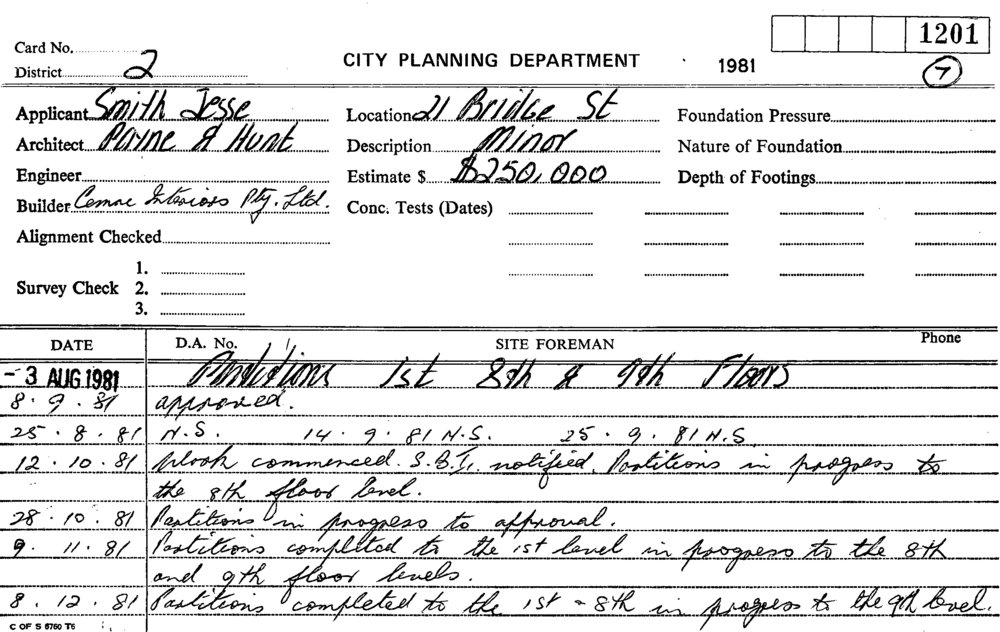 1201
Card No.
District 2
CITY PLANNING DEPARTMENT 1981 7
Applicant Smith Jesse Location 21 Bridge St Foundation Pressure
Architect Payne & Hunt Description Minor Nature of Foundation
Engineer Estimate $ $250,000 Depth of Footings
Builder Cemac Interiors Pty. Ltd. Conc. Tests (Dates)
Alignment Checked
1.
Survey Check 2.
3.
DATE D.A. No. SITE FOREMAN Phone
- 3 AUG 1981 Partitions 1st 8th & 9th Floors
8 . 9 . 81 approved.
25 . 8 . 81 N.S. 14 . 9 . 81 N.S. 25 . 9 . 81 N.S.
12 . 10 . 81 Work commenced. S.B.I. notified. Partitions in progress to
the 8th floor level.
28 . 10 . 81 Partitions in progress to approval.
9 . 11 . 81 Partitions completed to the 1st level in progress to the 8th
and 9th floor levels.
8 . 12 . 81 Partitions completed to the 1st - 8th in progress to the 9th level.
C OF S 6760 T6